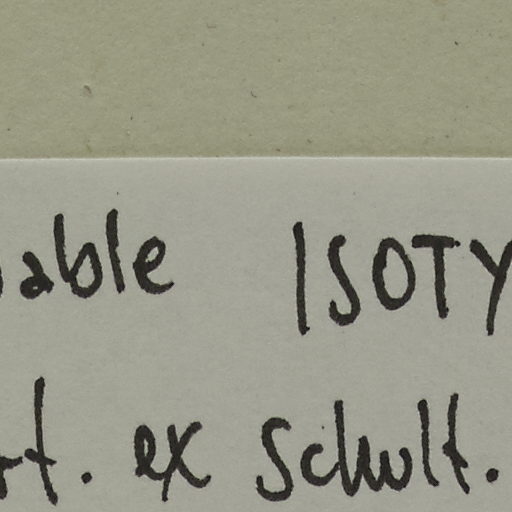 able ISOTY
rt. ex Schult.